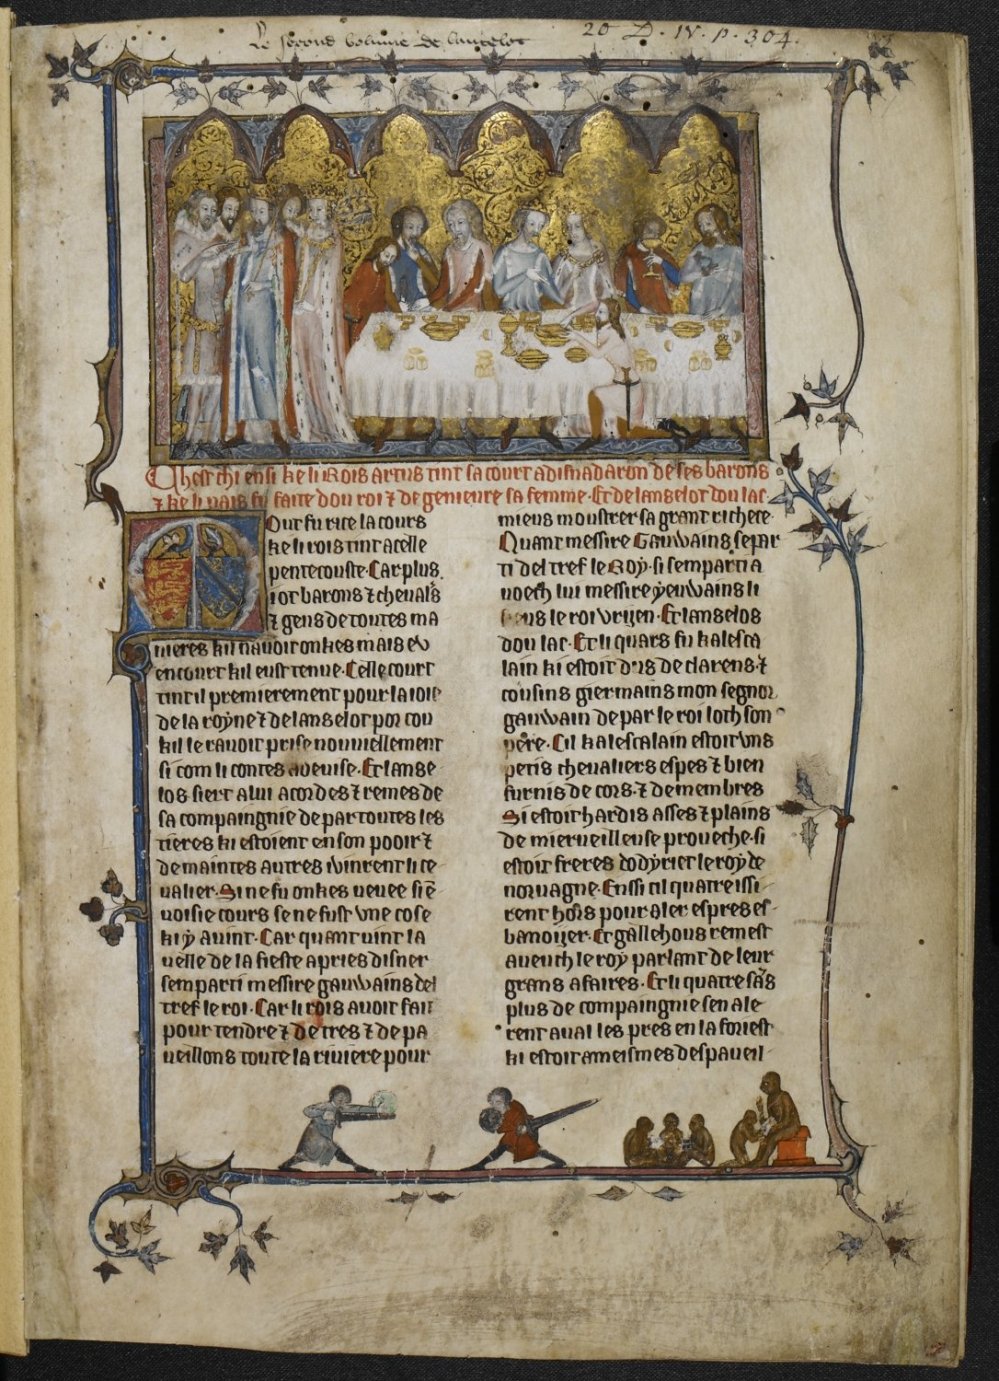 Le second volume de lancelot
20 D. IV. p. 304.
Chest chi ensi ke li Rois artus tint sa court a dismadaron de ses barons
⁊ ke li pais fu faite dou roi ⁊ de genieure sa femme. Et de lanselot dou lac.
Mout fu rice la cours
ke li rois tint a celle
pentecouste. Car plus
i ot barons ⁊ cheual's
⁊ gens de toutes ma
nieres kil nauoit onkes mais eu
en court kil eust tenue. Celle court
tint il premierement pour la ioie
de la royne ⁊ de lanselot por cou
kil le rauoit prise nouuiellement
si com li contes a deuise. Et lanse
los siert a lui acordes ⁊ remes de
sa compaingnie de par toutes les
tieres ki estoient en son pooir ⁊
de maintes autres i vinrent li ce
ualier. Si ne fu onkes veuee si en
uoisie cours se ne fust vne cose
ki y auint. Car quant vint la
uelle de la fieste apries disner
sem parti messire gauwains del
tref le roi. Car li rois auoit fait
pour tendre ⁊ de tres ⁊ de pa
ueillons toute la riuiere pour
mieus moustrer sa grant richece.
Quant messire Gauwains se par
ti del tref le Roy. si sem parti a
uoech lui messire yeuwains li
fieus le roi vrijen. Et lanselos
dou lac. Et li quars fu kalesca
lain ki estoit dus de clarens. ⁊
cousins giermains mon segnor
gauwain de par le roi loth son
pere. Cil kalescalain estoit vns
petis cheualiers espes ⁊ bien
furnis de cors. ⁊ de membres
Si estoit hardis asses ⁊ plains
de mierueilleuse proueche. si
estoit freres dodyriet le roy de
noruagne. Enssi cil quatre issi
rent hors pour aler espres es
banoijer. Et gallehous remest
aueuch le roy parlant de leur
grans afaires. Et li quatre sans
plus de compaingnie sen ale
rent aual les pres en la foriest
ki estoit a meismes des paueil